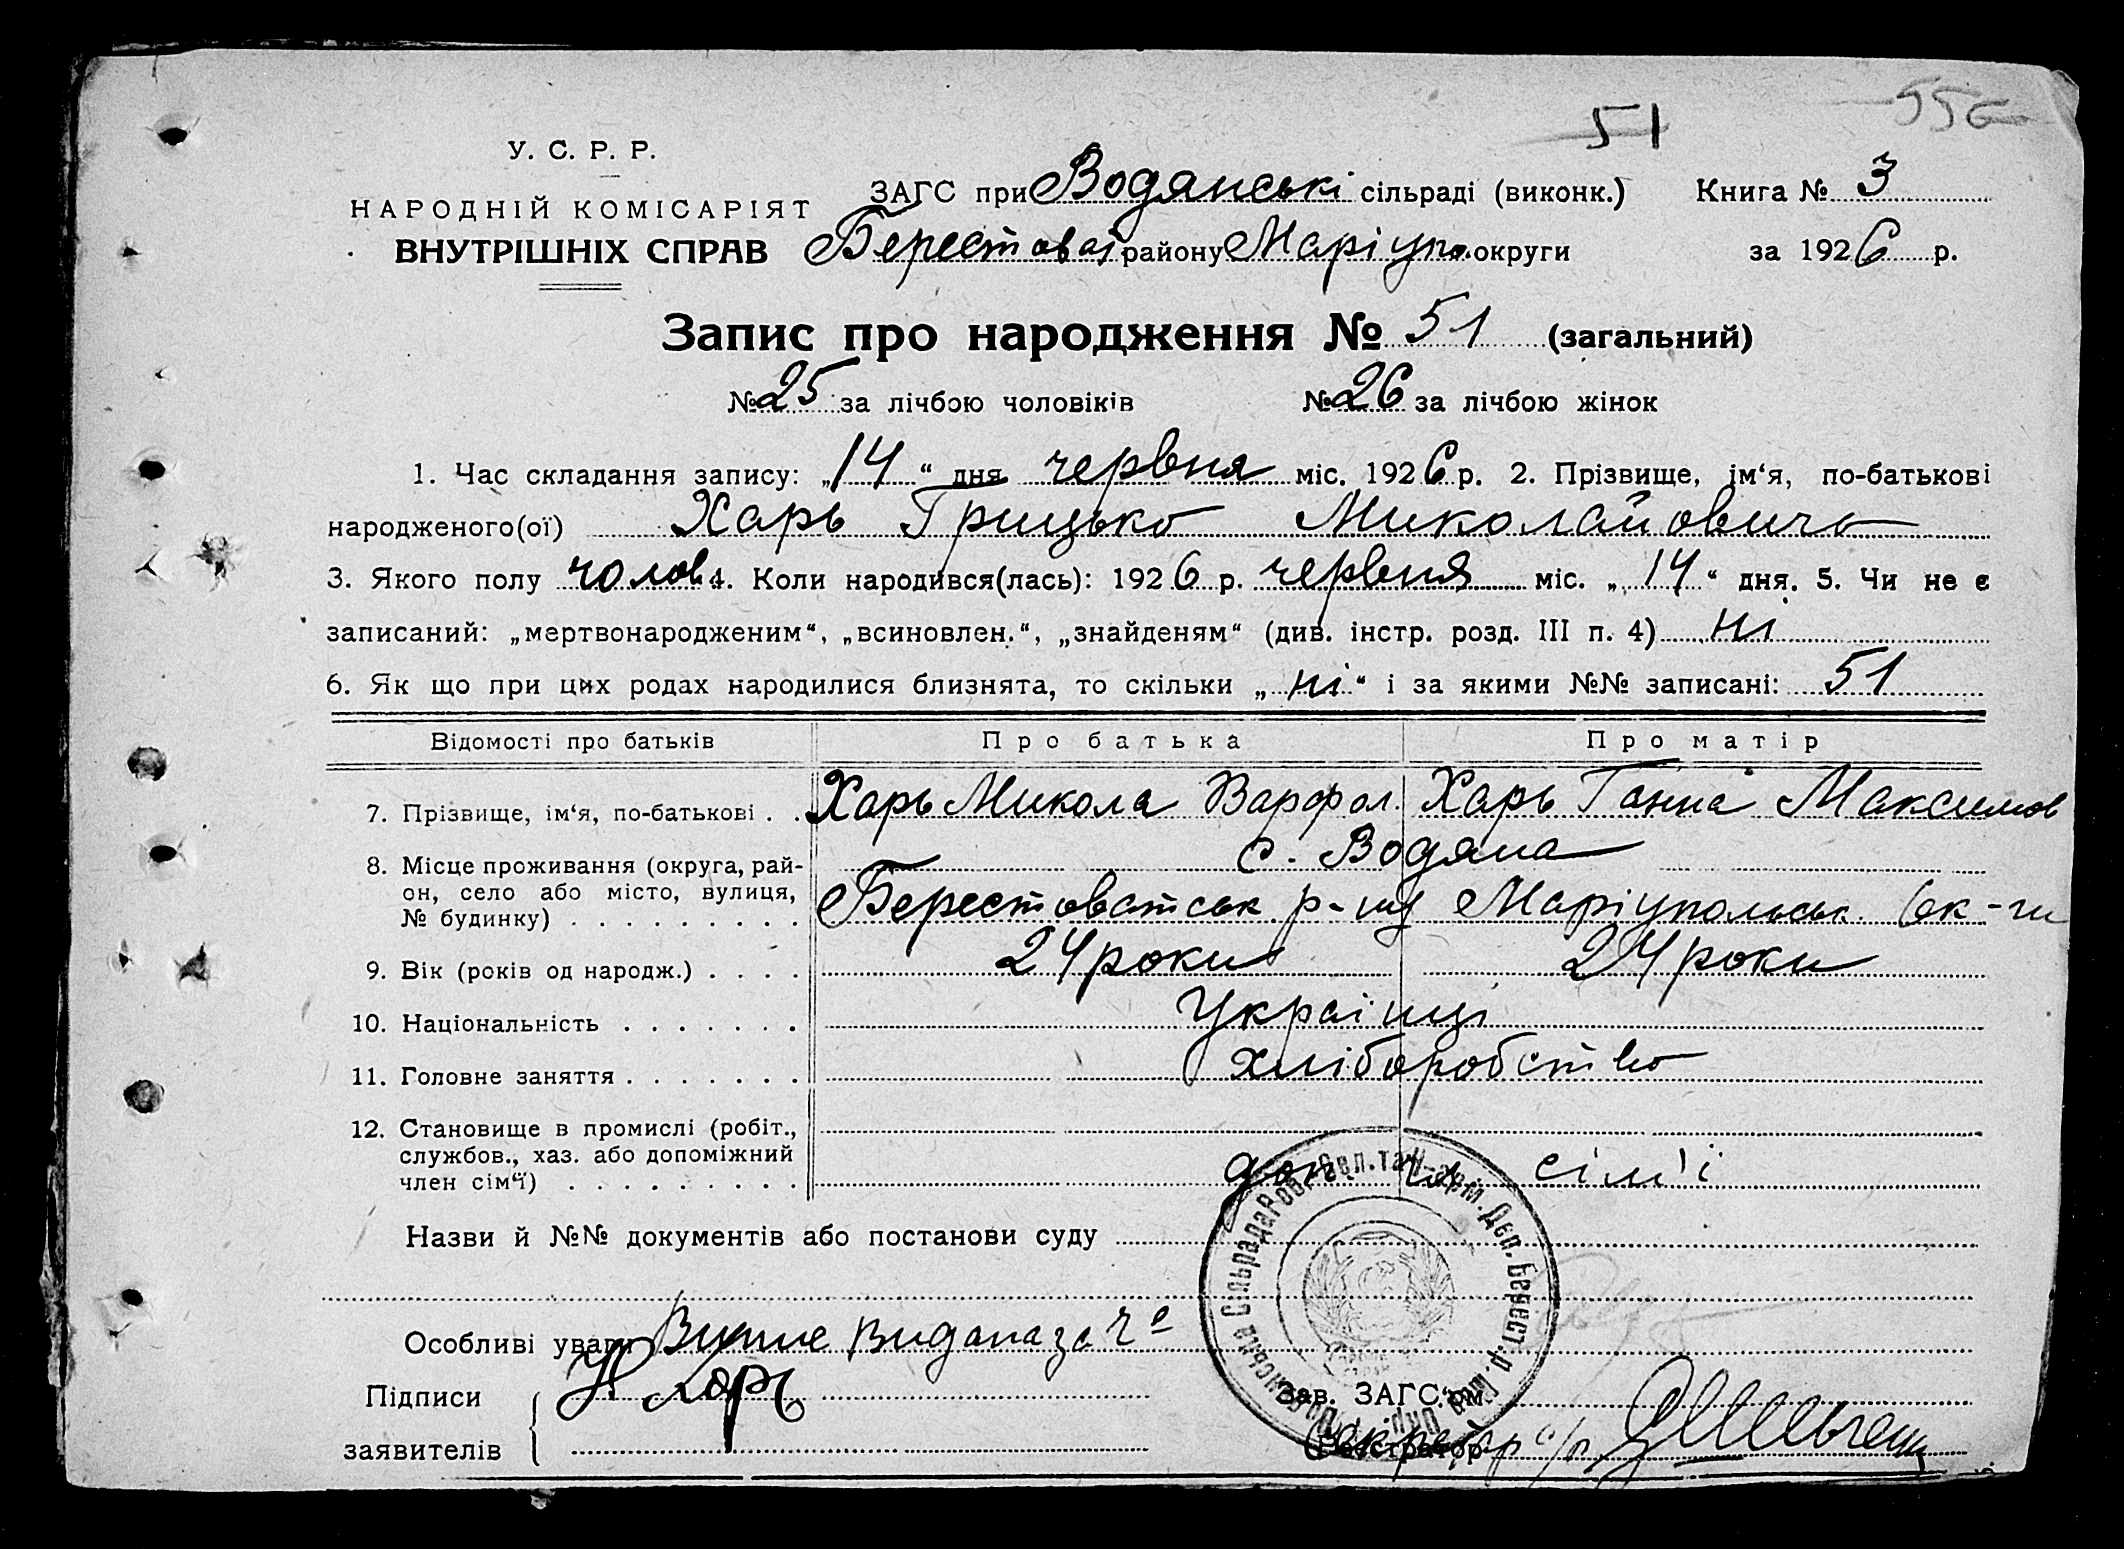 51 556
У. С. Р. Р.
НАРОДНІЙ КОМІСАРІЯТ
ВНУТРІШНІХ СПРАВ
ЗАГС при Водянські сільраді (виконк.) Книга № 3
Берестоват району Маріуп. округи за 1926 р.
Запис про народження № 51 (загальний)
№ 25 за лічбою чоловіків № 26 за лічбою жінок
1. Час складання запису: „14“ дня червня міс. 1926 р. 2. Прізвище, ім‘я, по-батькові
народженого(ої) Харь Грицько Миколайовичь
3. Якого полу чолов 4. Коли народився(лась): 1926 р. червня міс. „14“ дня. 5. Чи не є
записаний: „мертвонародженим“, „всиновлен.“, „знайденям“ (див. інстр. розд. III п. 4) ні
6. Як що при цих родах народилися близнята, то скільки „ні“ і за якими №№ записані: 51
Відомості про батьків Про батька Про матір
7. Прізвище, ім‘я, по-батькові . . Харь Микола Варфол. Харь Ганна Максимов
8. Місце проживання (округа, рай-
он, село або місто, вулиця,
№ будинку) . . . . . . . . .
с. Водяна
Берестоватськ р-ну Маріупольськ. ок-ги
9. Вік (років од народж.) . . . . 24 роки 24 роки
10. Національність . . . . . . . Українці
11. Головне заняття . . . . . . . хліборобство
12. Становище в промислі (робіт.,
службов., хаз. або допоміжний
член сім‘ї) . . . . . . . . .
доп. чл. сім'ї
Назви й №№ документів або постанови суду
Особливі уваги
Підписи
заявителів
Н Харь
Зав. ЗАГС‘ом
Реєстратор
Секретар с/р